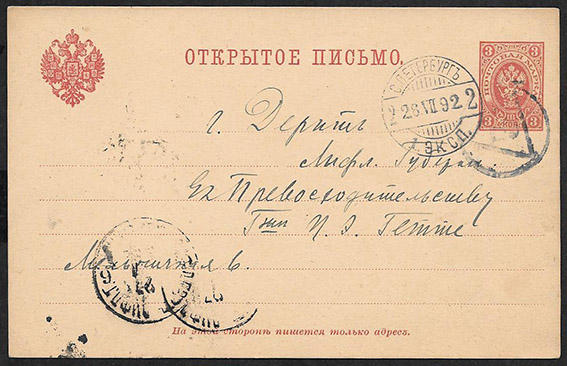 ОТКРЫТОЕ ПИСЬМО.
3 3
ПОЧТОВАЯ МАРКА
3 КОП 3
С.ПЕТЕРБУРГЪ
2 28 VI 92 2
1 ЭКСП.
г. Дерптъ
Лифл. Губерн.
Ея Превосходительству
Гжѣ
На этой сторонѣ пишется только адресъ.